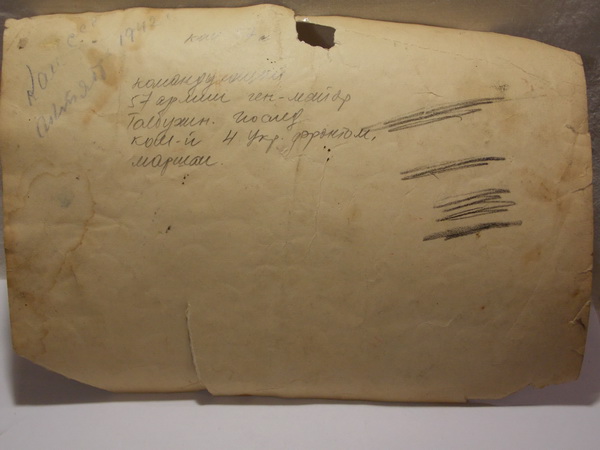 1942
командующий
57 армии ген-майор
Толбухин. Послед
ком-й 4 Укр. фронтом,
маршал.